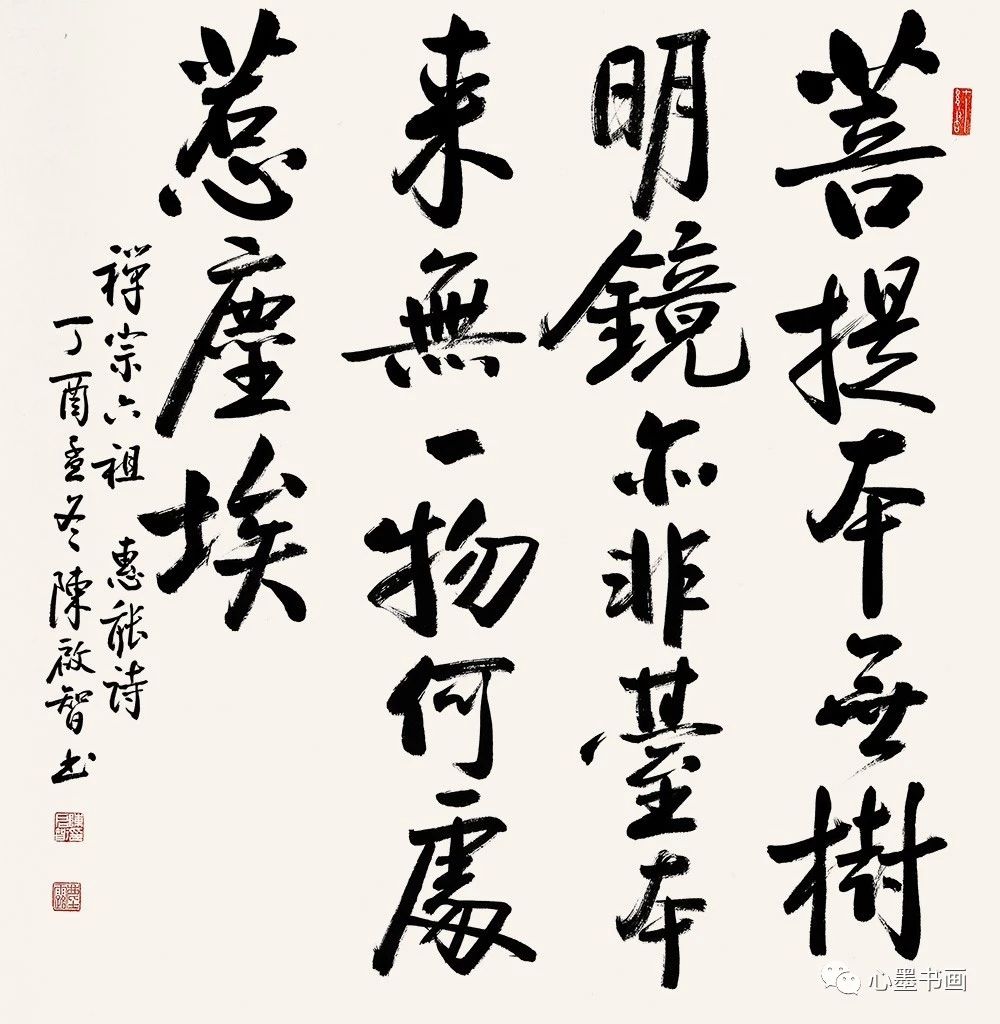 菩提本无樹
明鏡亦非臺本
来無一物何處
惹塵埃
禅宗六祖 惠能诗
丁酉孟冬陳啟智书
心墨书画